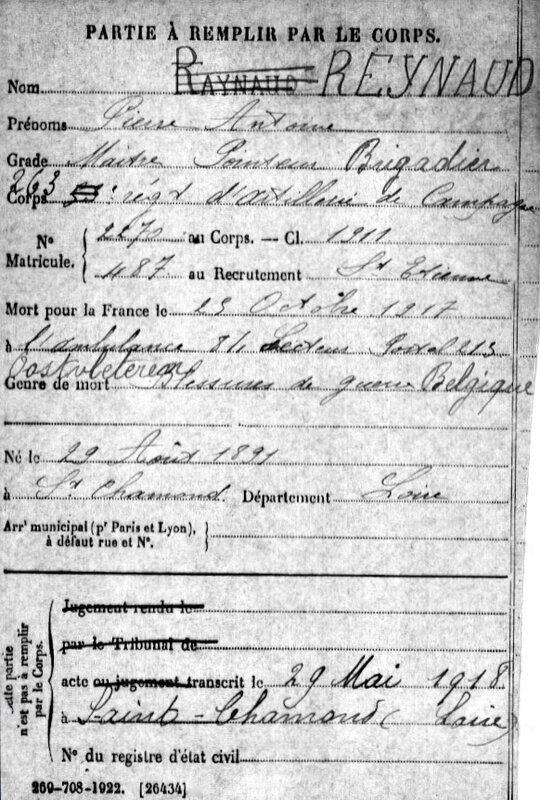 PARTIE À REMPLIR PAR LE CORPS.
Nom RAYNAUD REYNAUD
Prénoms Pierre Antoine
Grade Maitre Pointeur Brigadier
263
Corps régt d'artillerie de Campagne
N° Matricule. { 2270 au Corps. — Cl. 1911
487 au Recrutement St Etienne
Mort pour la France le 25 Octobre 1917
à l'ambulance Secteur Postal 213
Oostvleteren
Genre de mort Blessures de guerre Belgique
Né le 29 Août 1891
à St Chamond. Département Loire
Arrt municipal (pr Paris et Lyon), à défaut rue et N°. }
Cette partie n'est pas à remplir par le Corps. {
Jugement rendu le
par le Tribunal de
acte ou jugement transcrit le 29 Mai 1918
à Saint-Chamond (Loire)
N° du registre d'état civil
269-708-1922. [26434]